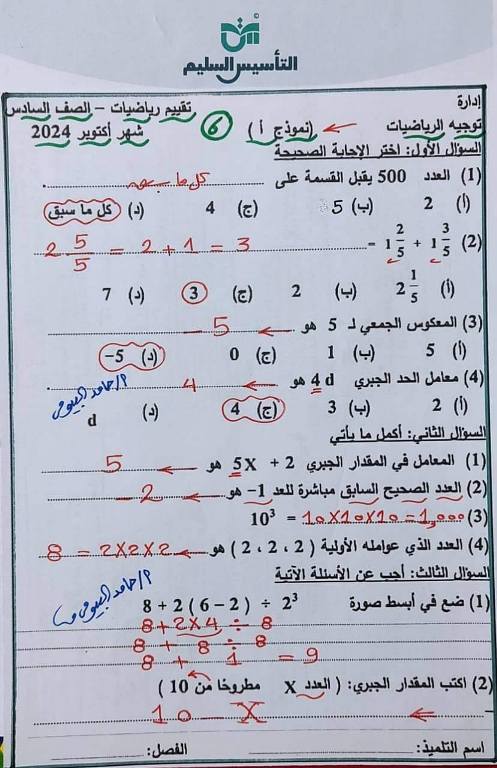 التأسيس السليم
إدارة
تقييم رياضيات – الصف السادس
توجيه الرياضيات (نموذج أ) 6 شهر أكتوبر 2024
السؤال الأول: اختر الإجابة الصحيحة
(1) العدد 500 يقبل القسمة على كل ما سبق
(أ) 2 (ب) 5 (ج) 4 (د) كل ما سبق
(2) 1 3/5 + 1 2/5 = 2 5/5 = 2 + 1 = 3
(أ) 2 1/5 (ب) 2 (ج) 3 (د) 7
(3) المعكوس الجمعي لـ 5 هو -5
(أ) 5 (ب) 1 (ج) 0 (د) -5
(4) معامل الحد الجبري 4 d هو 4
(أ) 2 (ب) 3 (ج) 4 (د) d
السؤال الثاني: أكمل ما يأتي
(1) المعامل في المقدار الجبري 5X + 2 هو 5
(2) العدد الصحيح السابق مباشرة للعدد -1 هو -2
(3) 10³ = 10×10×10 = 1,000
(4) العدد الذي عوامله الأولية ( 2 ، 2 ، 2 ) هو 8 = 2×2×2
السؤال الثالث: أجب عن الأسئلة الآتية
(1) ضع في أبسط صورة 8 + 2 ( 6 – 2 ) ÷ 2³
8 + 2×4 ÷ 8
8 + 8 ÷ 8
8 + 1 = 9
(2) اكتب المقدار الجبري: ( العدد X مطروحًا من 10 )
10 – X
اسم التلميذ: الفصل: